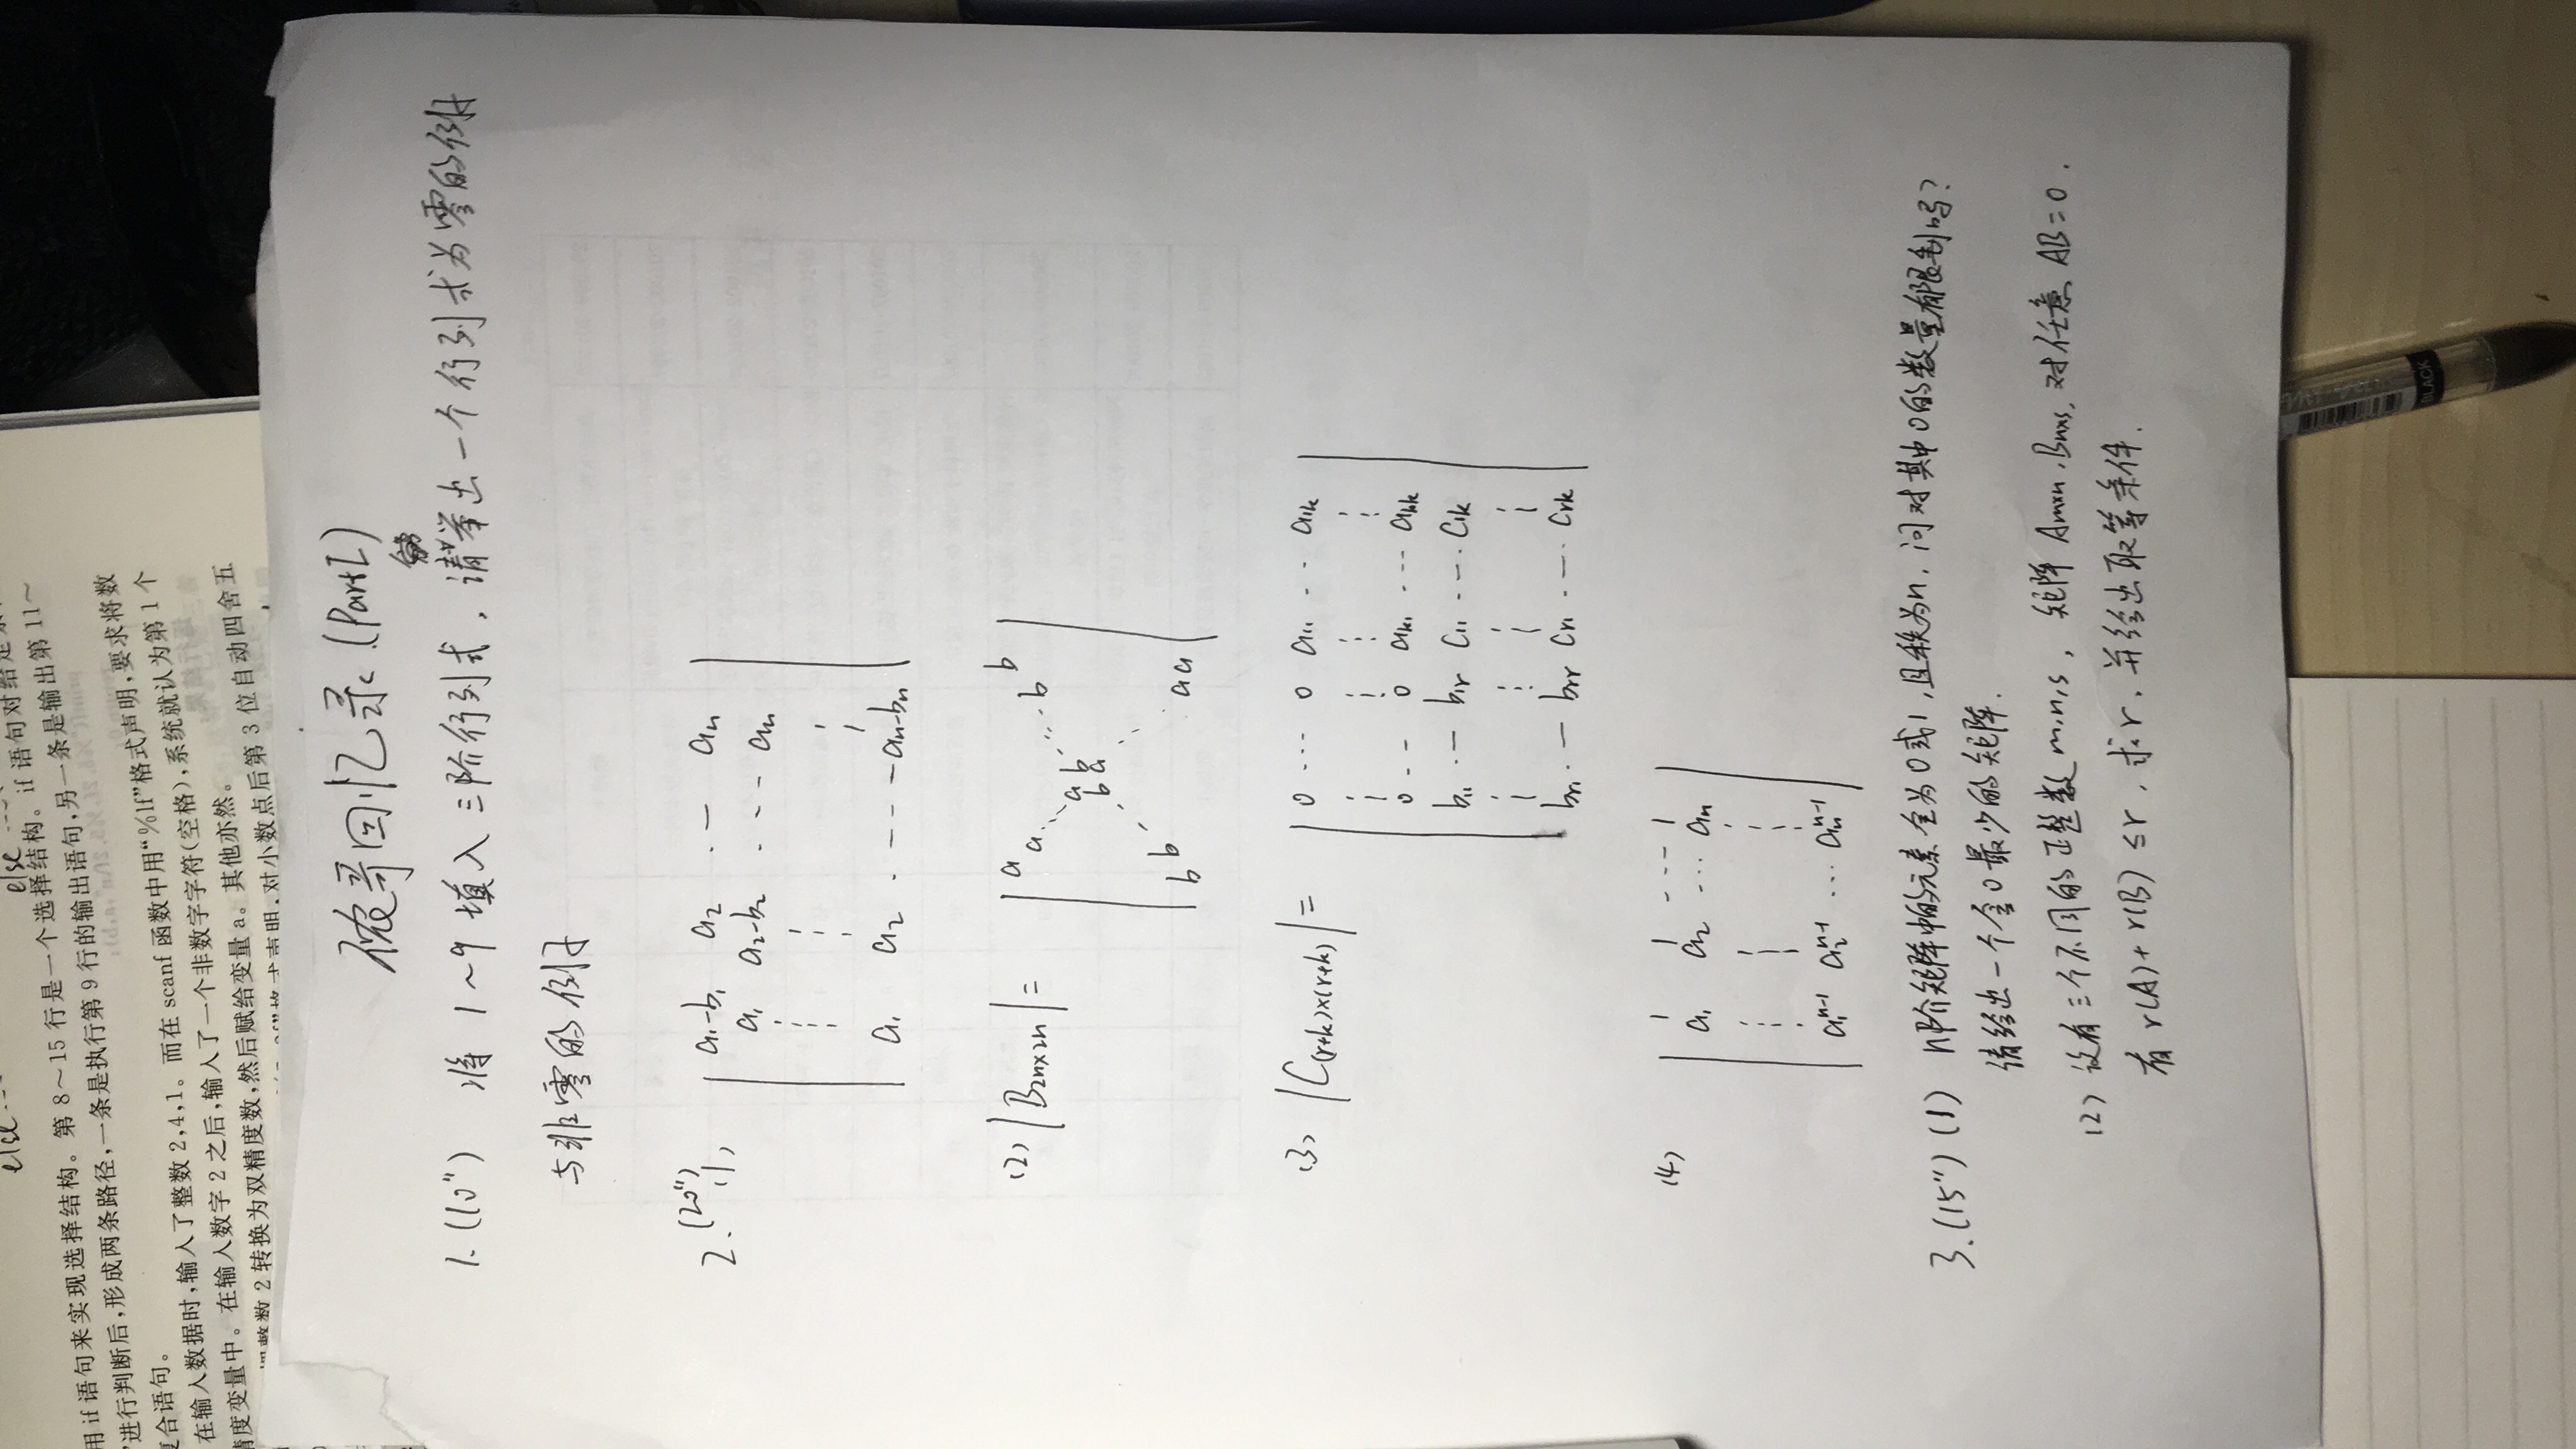 else...
else ...
用 if 语句来实现选择结构。第 8～15 行是一个选择结构。if 语句对给定
”进行判断后,形成两条路径,一条是执行第 9 行的输出语句,另一条是输出第 11～
复合语句。
在输入数据时,输入了整数 2,4,1。而在 scanf 函数中用“%lf”格式声明,要求将数
精度变量中。在输入数字 2 之后,输入了一个非数字字符(空格),系统就认为第 1 个
把整数 2 转换为双精度数,然后赋给变量 a。其他亦然。
格式声明,对小数点后第 3 位自动四舍五
哥回忆录.(Part I)
1.(10'') 将 1~9 填入三阶行列式,请举出一个行列式为零的例子
与非零的例子
2.(20'') (1)
a₁-b₁ a₂ ... aₙ
a₁ a₂-b₂ ... aₙ
a₁ a₂ ... aₙ-bₙ
(2) |B₂ₙₓ₂ₙ| =
a b
a b
a b
b a
b a
b a
(3) |C(r+k)×(r+k)| =
0 ... 0 a₁₁ ... a₁ₖ
0 ... 0 aₖ₁ ... aₖₖ
b₁₁ ... b₁ᵣ c₁₁ ... c₁ₖ
bᵣ₁ ... bᵣᵣ cᵣ₁ ... cᵣₖ
(4)
1 1 ... 1
a₁ a₂ ... aₙ
a₁ⁿ⁻¹ a₂ⁿ⁻¹ ... aₙⁿ⁻¹
3.(15'') (1) n阶矩阵中的元素全为0或1,且秩为n,问对其中0的数量有限制吗?
请给出一个含0最少的矩阵.
(2) 设有三个不同的正整数 m,n,s, 矩阵 Aₘₓₙ,Bₙₓₛ,对任意 AB=0.
有 r(A)+r(B)≤r,求r,并给出取等条件.
BLACK